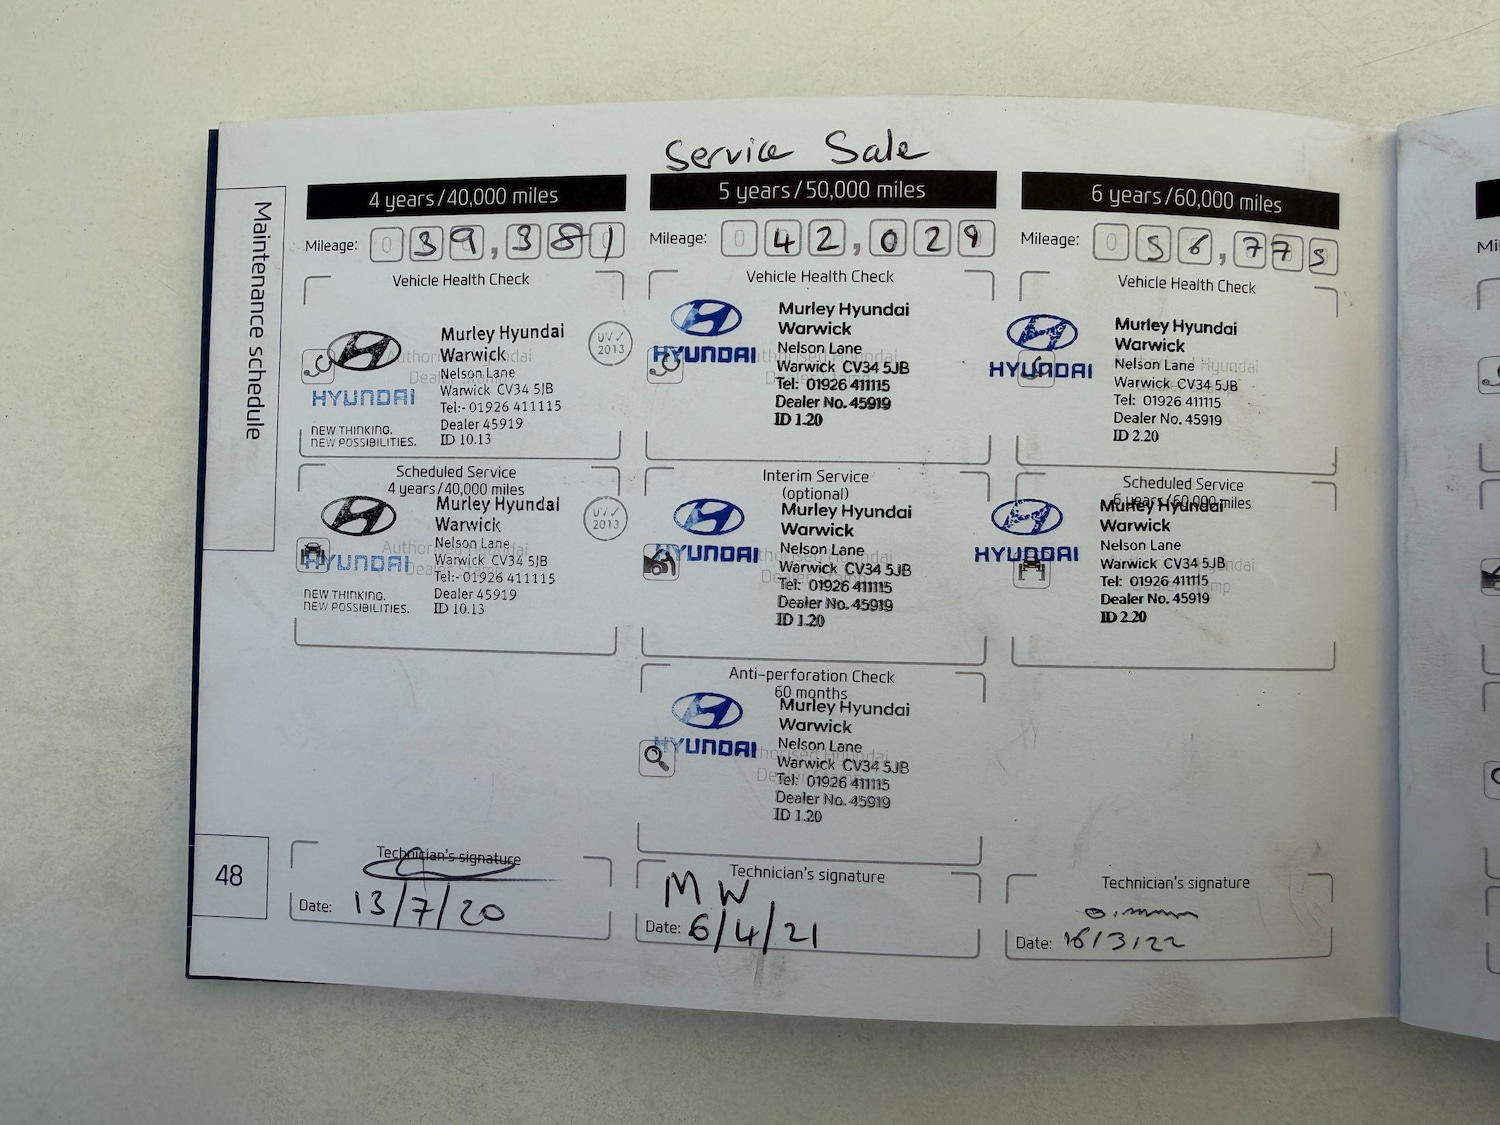 Service Sale
Maintenance schedule
4 years/40,000 miles
Mileage: 039,381
Vehicle Health Check
HYUNDAI
NEW THINKING.
NEW POSSIBILITIES.
Murley Hyundai
Warwick
Nelson Lane
Warwick CV34 5JB
Tel:- 01926 411115
Dealer 45919
ID 10.13
UV✓
2013
Scheduled Service
4 years/40,000 miles
HYUNDAI
NEW THINKING.
NEW POSSIBILITIES.
Murley Hyundai
Warwick
Nelson Lane
Warwick CV34 5JB
Tel:- 01926 411115
Dealer 45919
ID 10.13
UV✓
2013
Technician's signature
Date: 13/7/20
5 years/50,000 miles
Mileage: 042,029
Vehicle Health Check
HYUNDAI
Murley Hyundai
Warwick
Nelson Lane
Warwick CV34 5JB
Tel: 01926 411115
Dealer No. 45919
ID 1.20
Interim Service
(optional)
HYUNDAI
Murley Hyundai
Warwick
Nelson Lane
Warwick CV34 5JB
Tel: 01926 411115
Dealer No. 45919
ID 1.20
Anti-perforation Check
60 months
HYUNDAI
Murley Hyundai
Warwick
Nelson Lane
Warwick CV34 5JB
Tel: 01926 411115
Dealer No. 45919
ID 1.20
Technician's signature
MW
Date: 6/4/21
6 years/60,000 miles
Mileage: 056,775
Vehicle Health Check
HYUNDAI
Murley Hyundai
Warwick
Nelson Lane
Warwick CV34 5JB
Tel: 01926 411115
Dealer No. 45919
ID 2.20
Scheduled Service
6 years/60,000 miles
HYUNDAI
Murley Hyundai
Warwick
Nelson Lane
Warwick CV34 5JB
Tel: 01926 411115
Dealer No. 45919
ID 2.20
Technician's signature
Date: 16/3/22
48
Mi